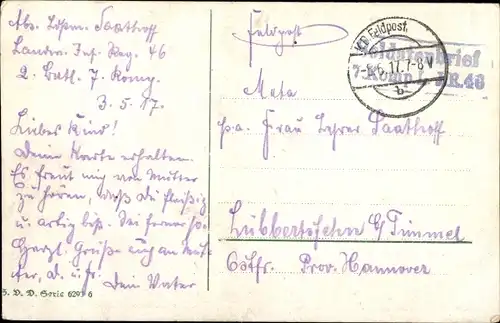 Abs. Ldstm. Saathoff
Landw. Inf. Reg. 46
2. Batl. 7. Komp.
3. 5. 17.
Liebes Kind!
Deine Karte erhalten.
Es freut mich von Mutter
zu hören, daß Du fleißig
und artig bist. Sei ferner so.
Herzl. Grüße auch an Mut-
ter, D. u. J. Dein Vater
S. V. D. Serie 6293 6
Feldpost
K.D. Feldpost.
17. 7-8 V
b
Soldatenbrief
7. Komp. L.I.R. 46
Meta
p. a. Frau Lehrer Saathoff
Lübbertsfehn b/Timmel
Ostfr. Prov. Hannover